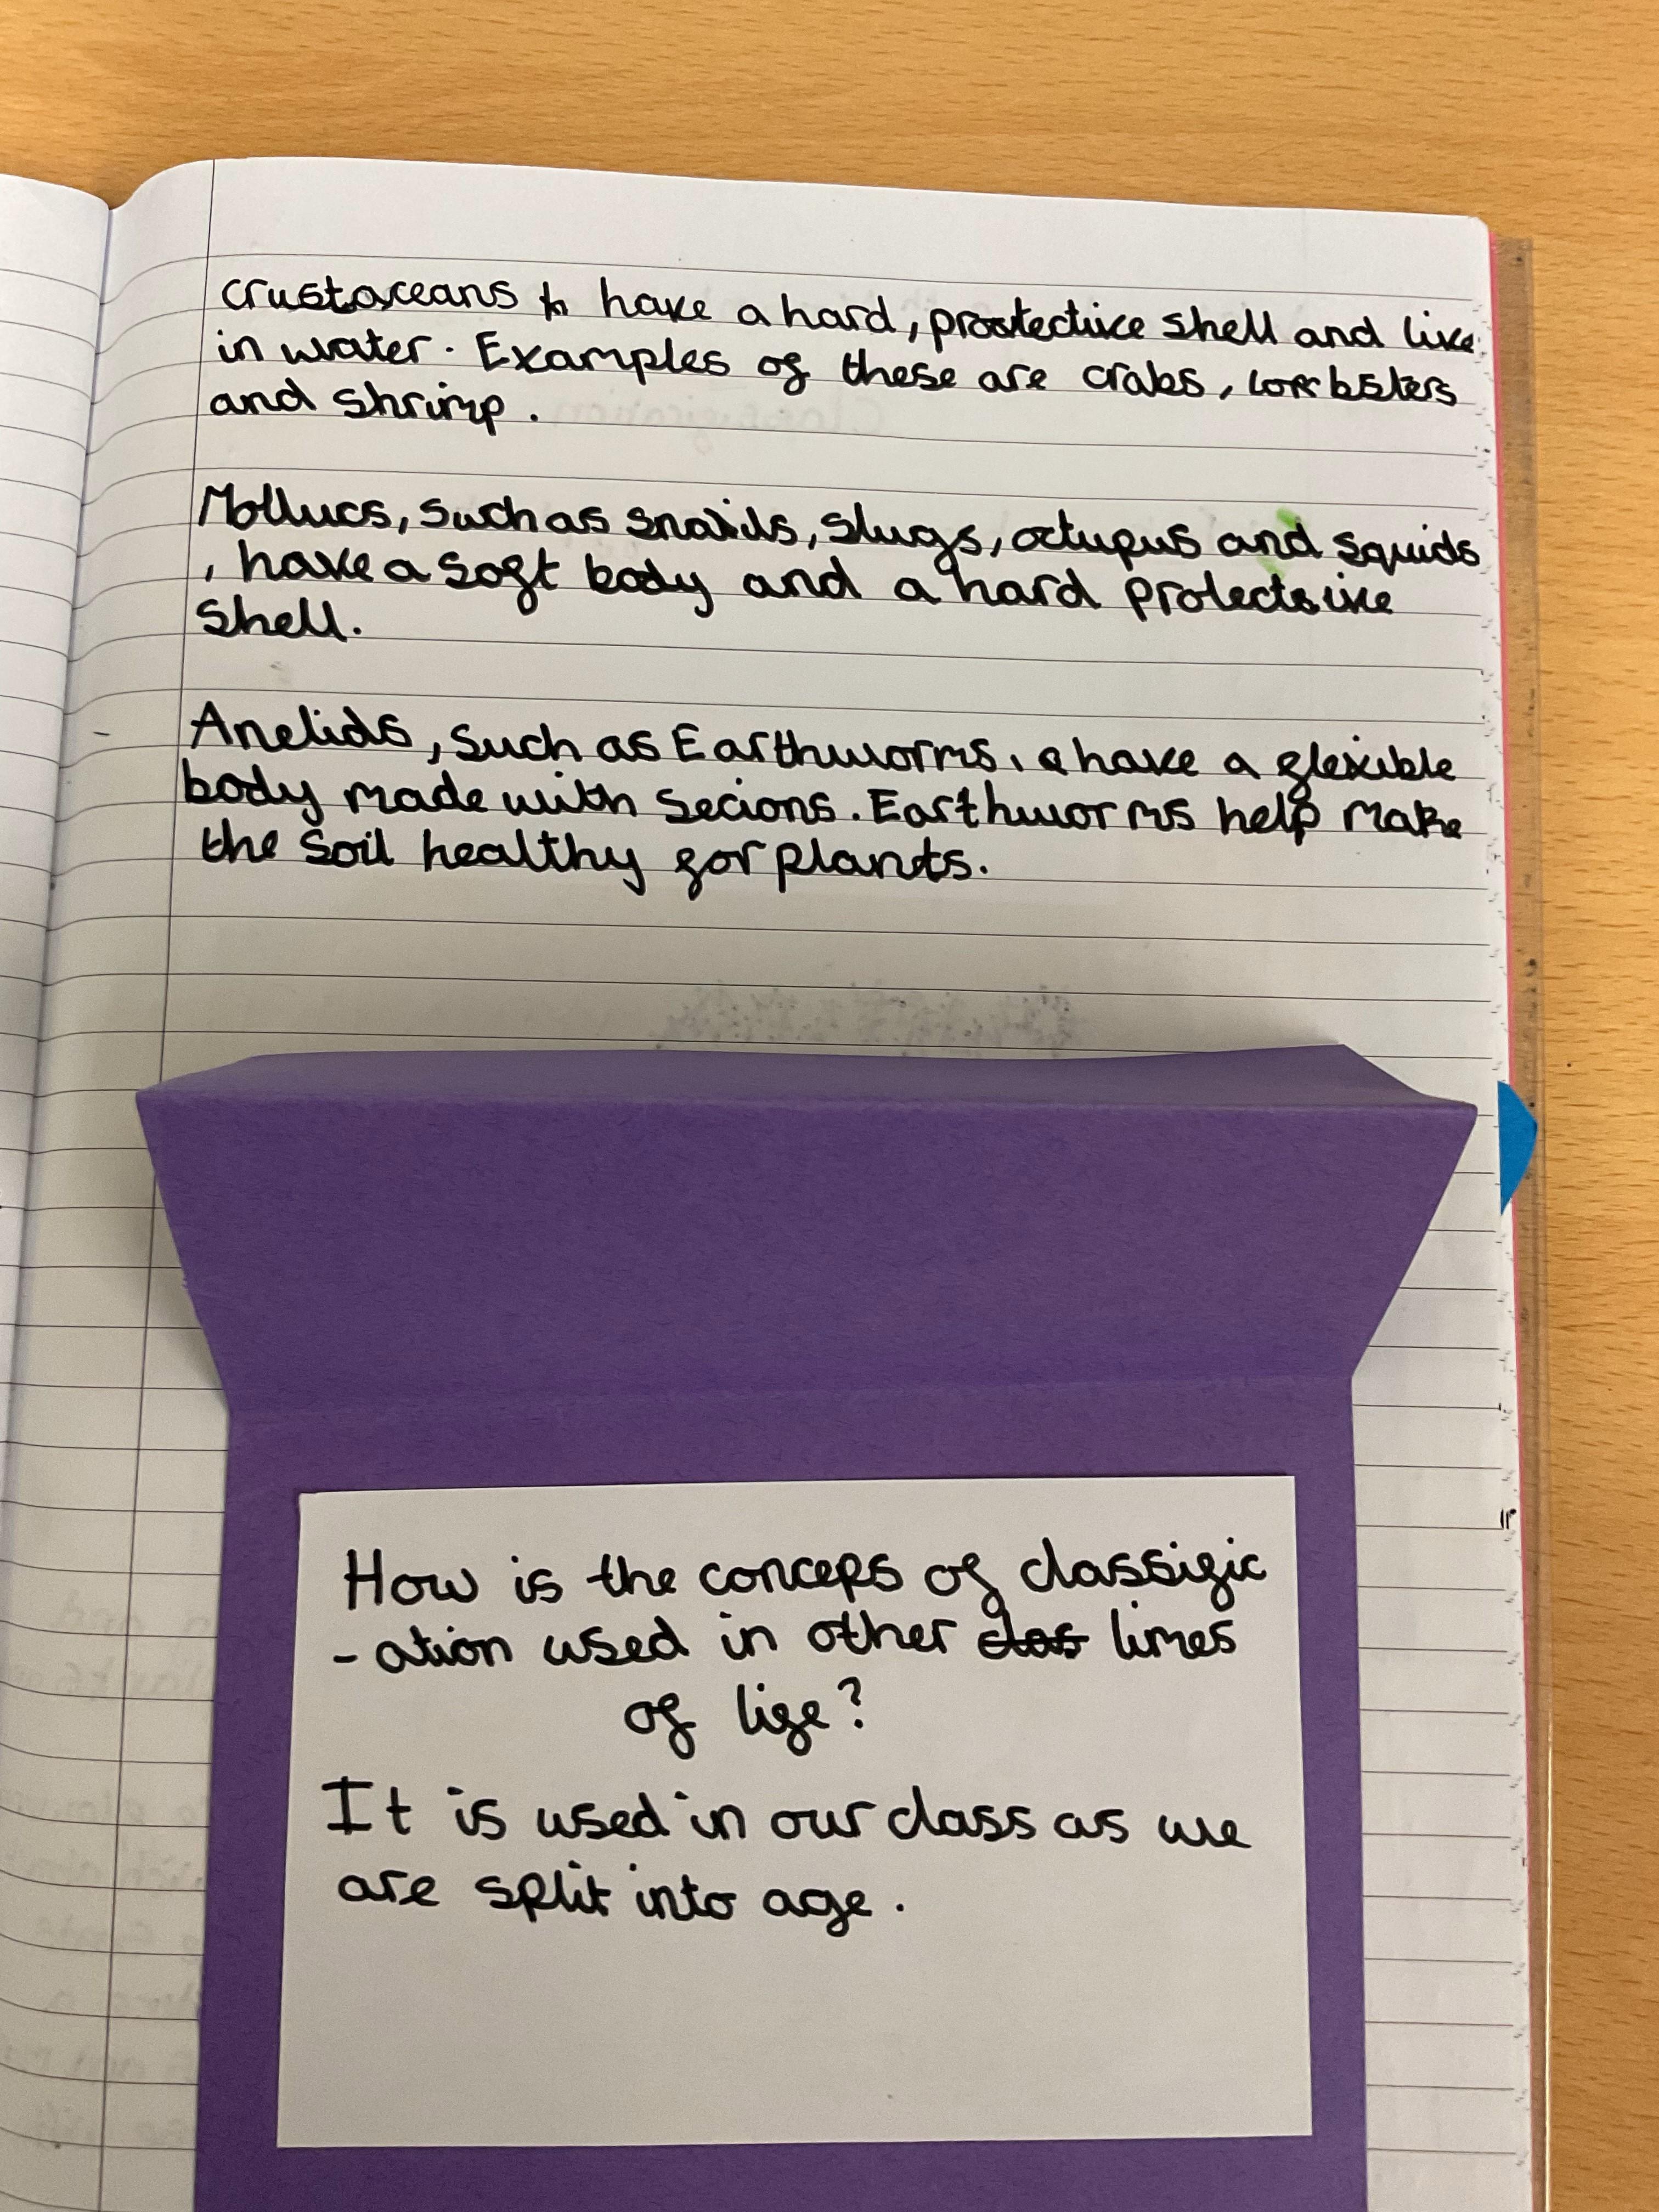 crustaceans have a hard, protective shell and live
in water. Examples of these are crabs, lobsters
and shrimp.
Mollucs, such as snails, slugs, octupus and squids
, have a soft body and a hard protective
shell.
Anelids, such as Earthworms, have a flexible
body made with secions. Earthworms help make
the soil healthy for plants.
How is the concept of classific
-ation used in other limes
of life?
It is used in our class as we
are split into age.